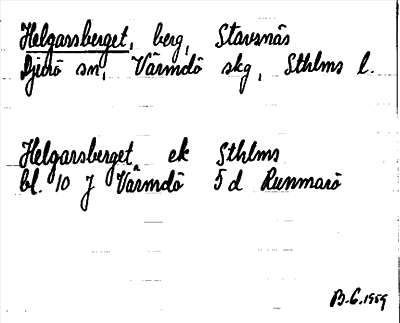 Helgarsberget, berg, Stavsnäs
Djurö sn, Värmdö skg, Sthlms l.
Helgarsberget ek Sthlms
bl. 10 J Värmdö 5d Runmarö
B.G. 1959